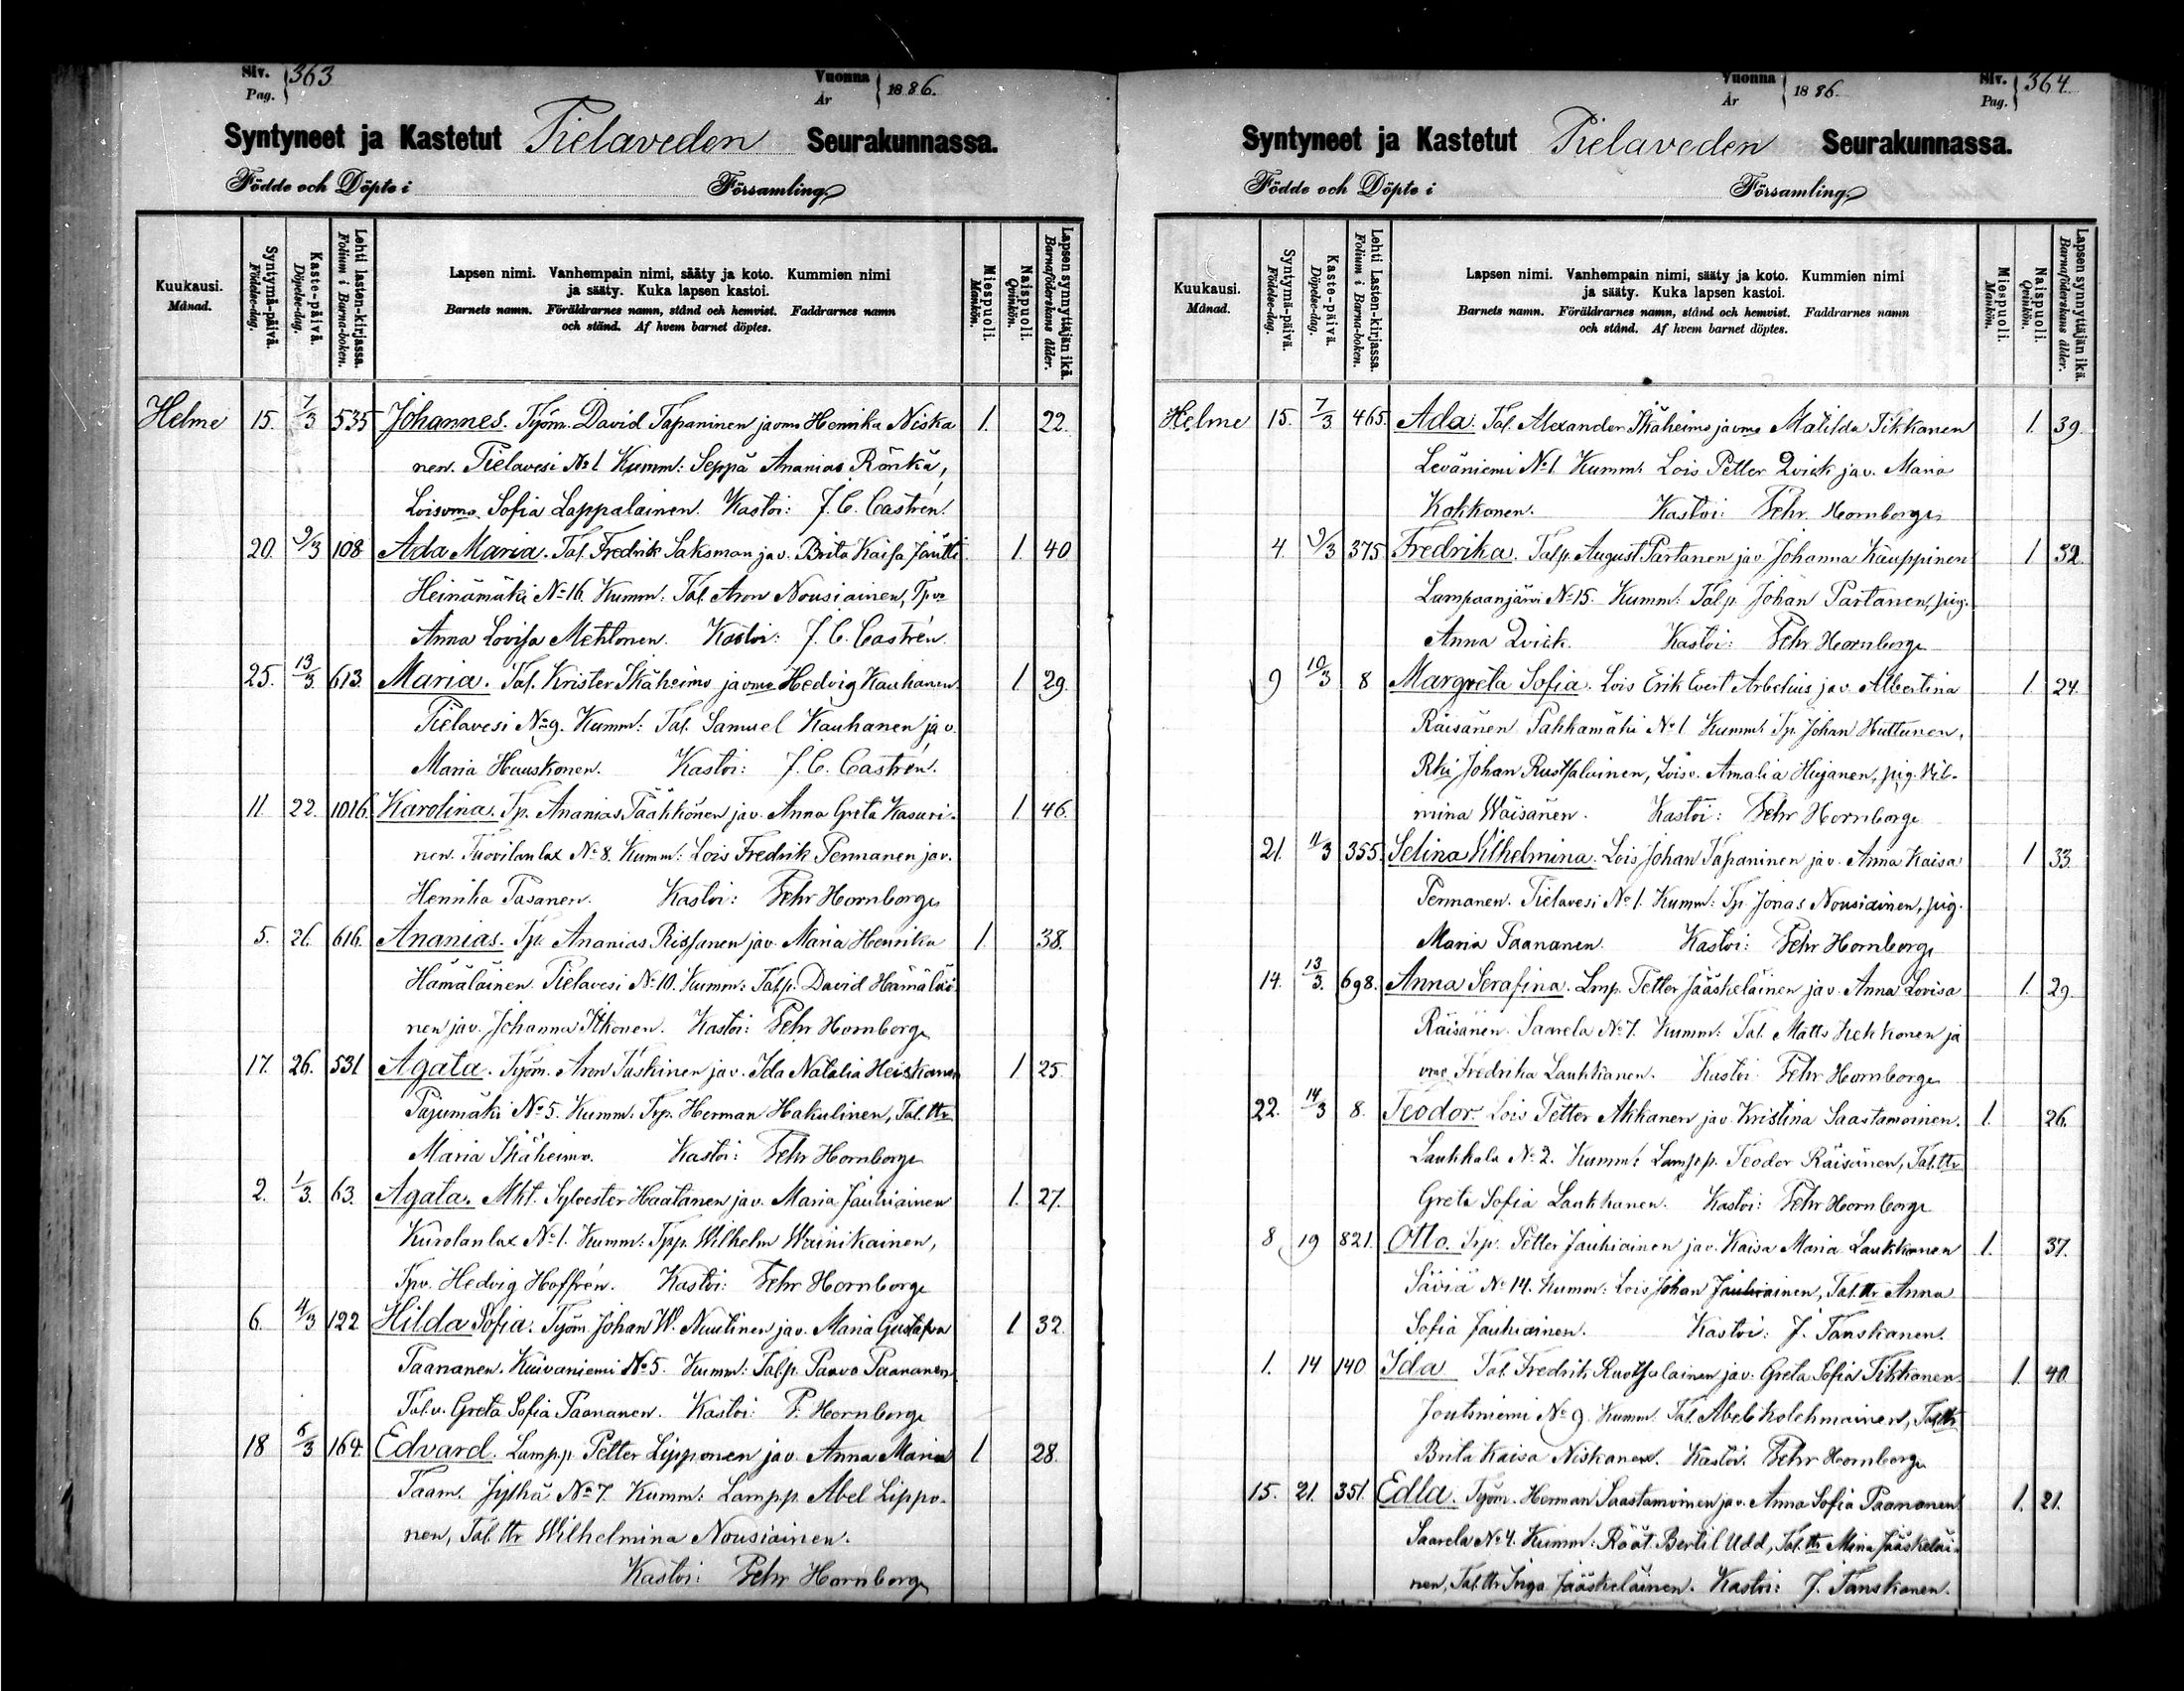 Siv. Pag. 363 Vuonna År 1886.
Syntyneet ja Kastetut Pielaveden Seurakunnassa.
Födde och Döpte i Församling.
Kuukausi. Månad.
Syntymä-päivä. Födelse-dag.
Kaste-päivä. Döpelse-dag.
Lehti lasten-kirjassa. Folium i Barna-boken.
Lapsen nimi. Vanhempain nimi, sääty ja koto. Kummien nimi
ja sääty. Kuka lapsen kastoi.
Barnets namn. Föräldrarnes namn, stånd och hemvist. Faddrarnes namn
och stånd. Af hvem barnet döptes.
Miespuoli. Mankön.
Naispuoli. Qvinkön.
Lapsen synnyttäjän ikä. Barnaföderskans ålder.
Helme 15. 7/3 535 Johannes. Työm. David Tapaninen ja vmo Henrika Niska 1. 22.
nen. Pielavesi No 1 Kumm: Seppä Ananias Rönkä,
Loisvmo Sofia Lappalainen. Kastoi: J. C. Castrén.
20. 9/3 108 Ada Maria. Tal. Fredrik Saksman ja v. Brita Kaisa Jäntti 1. 40.
Heinämäki No 16. Kumm: Tal. Aron Nousiainen, Tpv
Anna Lovisa Mehtonen. Kastoi: J. C. Castrén.
25. 13/3 613. Maria. Tal. Krister Ikäheimo ja vmo Hedvig Kauhanen. 1 29.
Pielavesi No 9. Kumm: Tal. Samuel Kauhanen ja v.
Maria Hauskonen. Kastoi: J. C. Castrén.
11 22. 1016. Karolina. Tp. Ananias Pääkkönen ja v. Anna Greta Kasuri- 1 46.
nen. Tuovilanlax No 8. Kumm: Lois Fredrik Pennanen ja v.
Henrika Pasanen. Kastoi: Pehr Hornborg
5. 26. 616. Ananias. Tp. Ananias Rissanen ja v. Maria Henrika 1. 38.
Hämäläinen. Pielavesi No 10. Kumm: Talp. David Hämäläi-
nen ja v. Johanna Itkonen. Kastoi: Pehr Hornborg
17. 26. 531 Agata. Työm. Aron Taskinen ja v. Ida Natalia Heiskanen 1 25.
Pajumäki No 5. Kumm: Trp. Herman Hakulinen, Tal. ttr
Maria Ikäheimo. Kastoi: Pehr Hornborg
2. 1/3. 63. Agata. Mkt. Sylvester Haatanen ja v. Maria Jauhiainen 1. 27.
Kurolanlax No 1. Kumm: Tpp. Wilhelm Wainikainen,
Tpv. Hedvig Hoffrén. Kastoi: Pehr Hornborg
6. 4/3 122 Hilda Sofia. Työm. Johan W. Nuutinen ja v. Maria Gustafva 1 32.
Paananen. Kuivaniemi No 5. Kumm: Talp. Paavo Paananen,
Tal.v. Greta Sofia Paananen. Kastoi: P. Hornborg
18 6/3 164. Edvard. Lampp. Petter Lipponen ja v. Anna Maria 1 28.
Taam. Jylhä No 7. Kumm: Lampp. Abel Lippo-
nen, Tal. ttr Wilhelmina Nousiainen.
Kastoi: Pehr Hornborg
Vuonna År 1886. Siv. Pag. 364.
Syntyneet ja Kastetut Pielaveden Seurakunnassa.
Födde och Döpte i Församling.
Kuukausi. Månad.
Syntymä-päivä. Födelse-dag.
Kaste-päivä. Döpelse-dag.
Lehti Lasten-kirjassa. Folium i Barna-boken.
Lapsen nimi. Vanhempain nimi, sääty ja koto. Kummien nimi
ja sääty. Kuka lapsen kastoi.
Barnets namn. Föräldrarnes namn, stånd och hemvist. Faddrarnes namn
och stånd. Af hvem barnet döptes.
Miespuoli. Mankön.
Naispuoli. Qvinkön.
Lapsen synnyttäjän ikä. Barnaföderskans ålder.
Helme 15. 7/3 465. Ada. Tal. Alexander Ikäheimo ja vmo Matilda Tikkanen 1. 39.
Leväniemi No 1. Kumm: Lois Petter Qvick ja v. Maria
Kokkonen. Kastoi: Pehr Hornborg
4. 9/3 375 Fredrika. Talp. August Partanen ja v. Johanna Kauppinen 1 32.
Lampaanjärvi No 15. Kumm: Talp. Johan Partanen, pig.
Anna Qvick. Kastoi: Pehr Hornborg
9 10/3 8 Margreta Sofia. Lois Erik Evert Arbelius ja v. Albertina 1. 24.
Räisänen Pakkamäki No 1 Kumm: Tp. Johan Huttunen,
Rki Johan Ruotsalainen, Loisv. Amalia Hujanen, pig. Vil-
mina Wäisänen. Kastoi: Pehr Hornborg
21. 11/3 355. Selina Wilhelmina. Lois Johan Tapaninen ja v. Anna Kaisa 1 33.
Pennanen. Pielavesi No 1. Kumm: Tp. Jonas Nousiainen, pig.
Maria Paananen. Kastoi: Pehr Hornborg
14. 13/3. 698. Anna Serafina. Lmp. Petter Jääskeläinen ja v. Anna Lovisa 1. 29.
Räisänen. Saarela No 7. Kumm: Tal. Matts Kekkonen ja
vmo Fredrika Laukkanen. Kastoi Pehr Hornborg
22. 14/3 8. Teodor. Lois Petter Akkanen ja v. Kristina Saastamoinen. 1. 26.
Laukkala No 2. Kumm: Lampp. Teodor Räisänen, Tal. ttr
Greta Sofia Laukkanen. Kastoi: Pehr Hornborg
8 19 821. Otto. Trp. Petter Jauhiainen ja v. Kaisa Maria Laukkanen 1. 37.
Säviä No 14. Kumm: Lois Johan Jauhiainen, Tal. ttr Anna
Sofia Jauhiainen. Kastoi: J. Tanskanen.
1. 14 140 Ida Tal. Fredrik Ruotsalainen ja v. Greta Sofia Tikkanen 1. 40.
Joutsniemi No 9. Kumm. Tal. Abel Kolehmainen, Tal. ttr
Brita Kaisa Niskanen. Kastoi. Pehr Hornborg
15. 21. 351. Edla. Työm. Herman Saastamoinen ja v. Anna Sofia Paananen 1. 21.
Saarela No 4. Kumm: Räät. Bertil Udd, Tal. ttr Mina Jääskeläi-
nen, Tal. ttr Inga Jääskeläinen. Kastoi: J. Tanskanen.